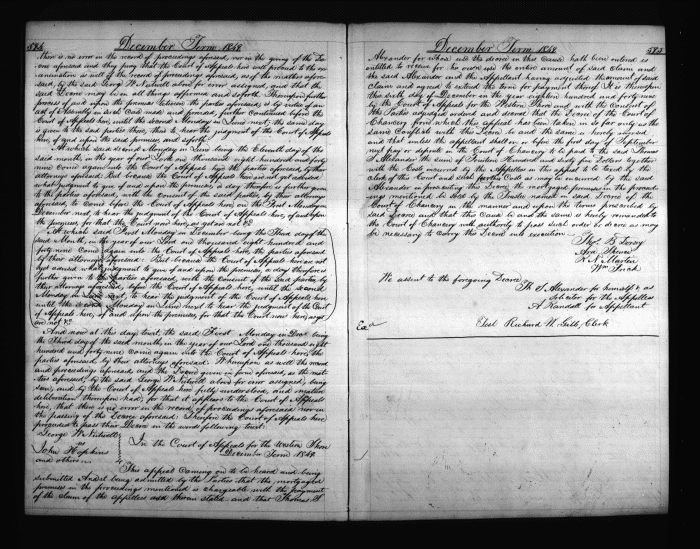 584
December Term 1849
there is no error in the record of proceedings aforesaid, nor in the giving of the De
cree aforesaid and they pray that the Court of Appeals here will proceed to the ex
amination as well of the record of proceedings aforesaid, as of the matters afore
said, by the said George W Nutwell above for error assigned, and that the
said Decree may be in all things affirmed and so forth. Thereupon further
process of and upon the premises between the parties aforesaid is by virtue of an
act of Assembly in such Case made and provided further Continued before the
Court of Appeals here, until the second Monday in June next; the same day
is given to the said parties there, then to hear the judgment of the Court of Appeals
here, of and upon the said premises, and so forth.
At which said second Monday in June being the Eleventh day of the
said month, in the year of our Lord one thousand eight hundred and forty
nine Come again into the Court of Appeals here the parties aforesaid, by their
attorneys aforesaid. But because the Court of Appeals here are not yet advised
what judgment to give of and upon the premises, a day therefore is further given
to the parties aforesaid, with the Consent of the said parties by their attorneys
aforesaid, to Come before the Court of Appeals here, on the first Monday in
December next to hear the judgment of the Court of Appeals here, of and upon
the premises, for that the Court now here, as yet are not &c
At which said First Monday in December being the Third day of the
said Month, in the year of our Lord one thousand eight hundred and forty
nine Come again into the Court of Appeals here, the parties aforesaid
by their attorneys aforesaid: But because the Court of Appeals here are not
yet advised what judgment to give of and upon the premises, a day therefore is
further given to the parties aforesaid, with the Consent of the said parties, by
their attorneys aforesaid, before the Court of Appeals here, until the second
Monday in June next, to hear the judgment of the Court of Appeals here
until the second Monday in June next to hear the judgment of the Court
of Appeals here, of and upon the premises, for that the Court now here, as yet
are not &c
And now at this day, to wit, the said First Monday in Decr being
the Third day of the said month in the year of our Lord one thousand eight
hundred and forty-nine Come again into the Court of Appeals here, the
parties aforesaid, by their attorneys aforesaid. Whereupon as well the record
and proceedings aforesaid, and the Decree given in form aforesaid, as the mat-
ters aforesaid, by the said George W Nutwell above for error assigned, being
seen, and by the Court of Appeals here fully understood, and mature
deliberation thereupon had, for that it appears to the Court of Appeals
here, that there is no error in the record of proceedings aforesaid nor in
the passing of the Decree aforesaid: Therefore the Court of Appeals here
proceeded to pass their Decree in the words following to wit:
George W Nutwell
vs
John Hopkins
and others
In the Court of Appeals for the Western Shore
December Term 1849.
This appeal Coming on to be heard and being
submitted And it being admitted by the Parties that the mortgaged
premises in the proceedings mentioned is chargeable with the payment
of the claim of the appellees as therein stated and that Thomas S
December Term 1849
585
Alexander for whose use the decree in this Cause hath been entered is
entitled to receive for his own use the entire amount of said Claim and
the said Alexander and the Appellant having adjusted the amount of said
Claim and agreed to extend the term for payment thereof It is thereupon
this sixth day of December in the year eighteen hundred and forty-nine
by the Court of Appeals for the Western Shore and with the Consent of
the Parties adjudged ordered and decreed that the Decree of the Court of
Chancery from which this appeal has been taken in so far only as the
same Conflicts with this Decree be and the same is hereby reversed
and that unless the appellant shall on or before the first day of September
next pay or deposit in the Court of Chancery to be paid to the said Thomas
S Alexander the sum of Fourteen Hundred and sixty five Dollars together
with the Costs incurred by the Appellees in this appeal to be taxed by the
Clerk of this Court and such further Costs as may be incurred by the said
Alexander in prosecuting this Decree, the mortgaged premises in the proceed
ings mentioned be sold by the Trustee named in said Decree of the
Court of Chancery in the manner and upon the terms prescribed in
said Decree and that this Cause be and the same is hereby remanded to
the Court of Chancery with authority to pass such order or decree as may
be necessary to Carry this Decree into execution
Thos. B Dorsey
Ara Spence
R N Martin
Wm Frick
We assent to the foregoing Decree
Th S. Alexander for himself & as
solicitor for the Appellees
A Randall for Appellant
Exd
Test Richard W. Gill, Clerk